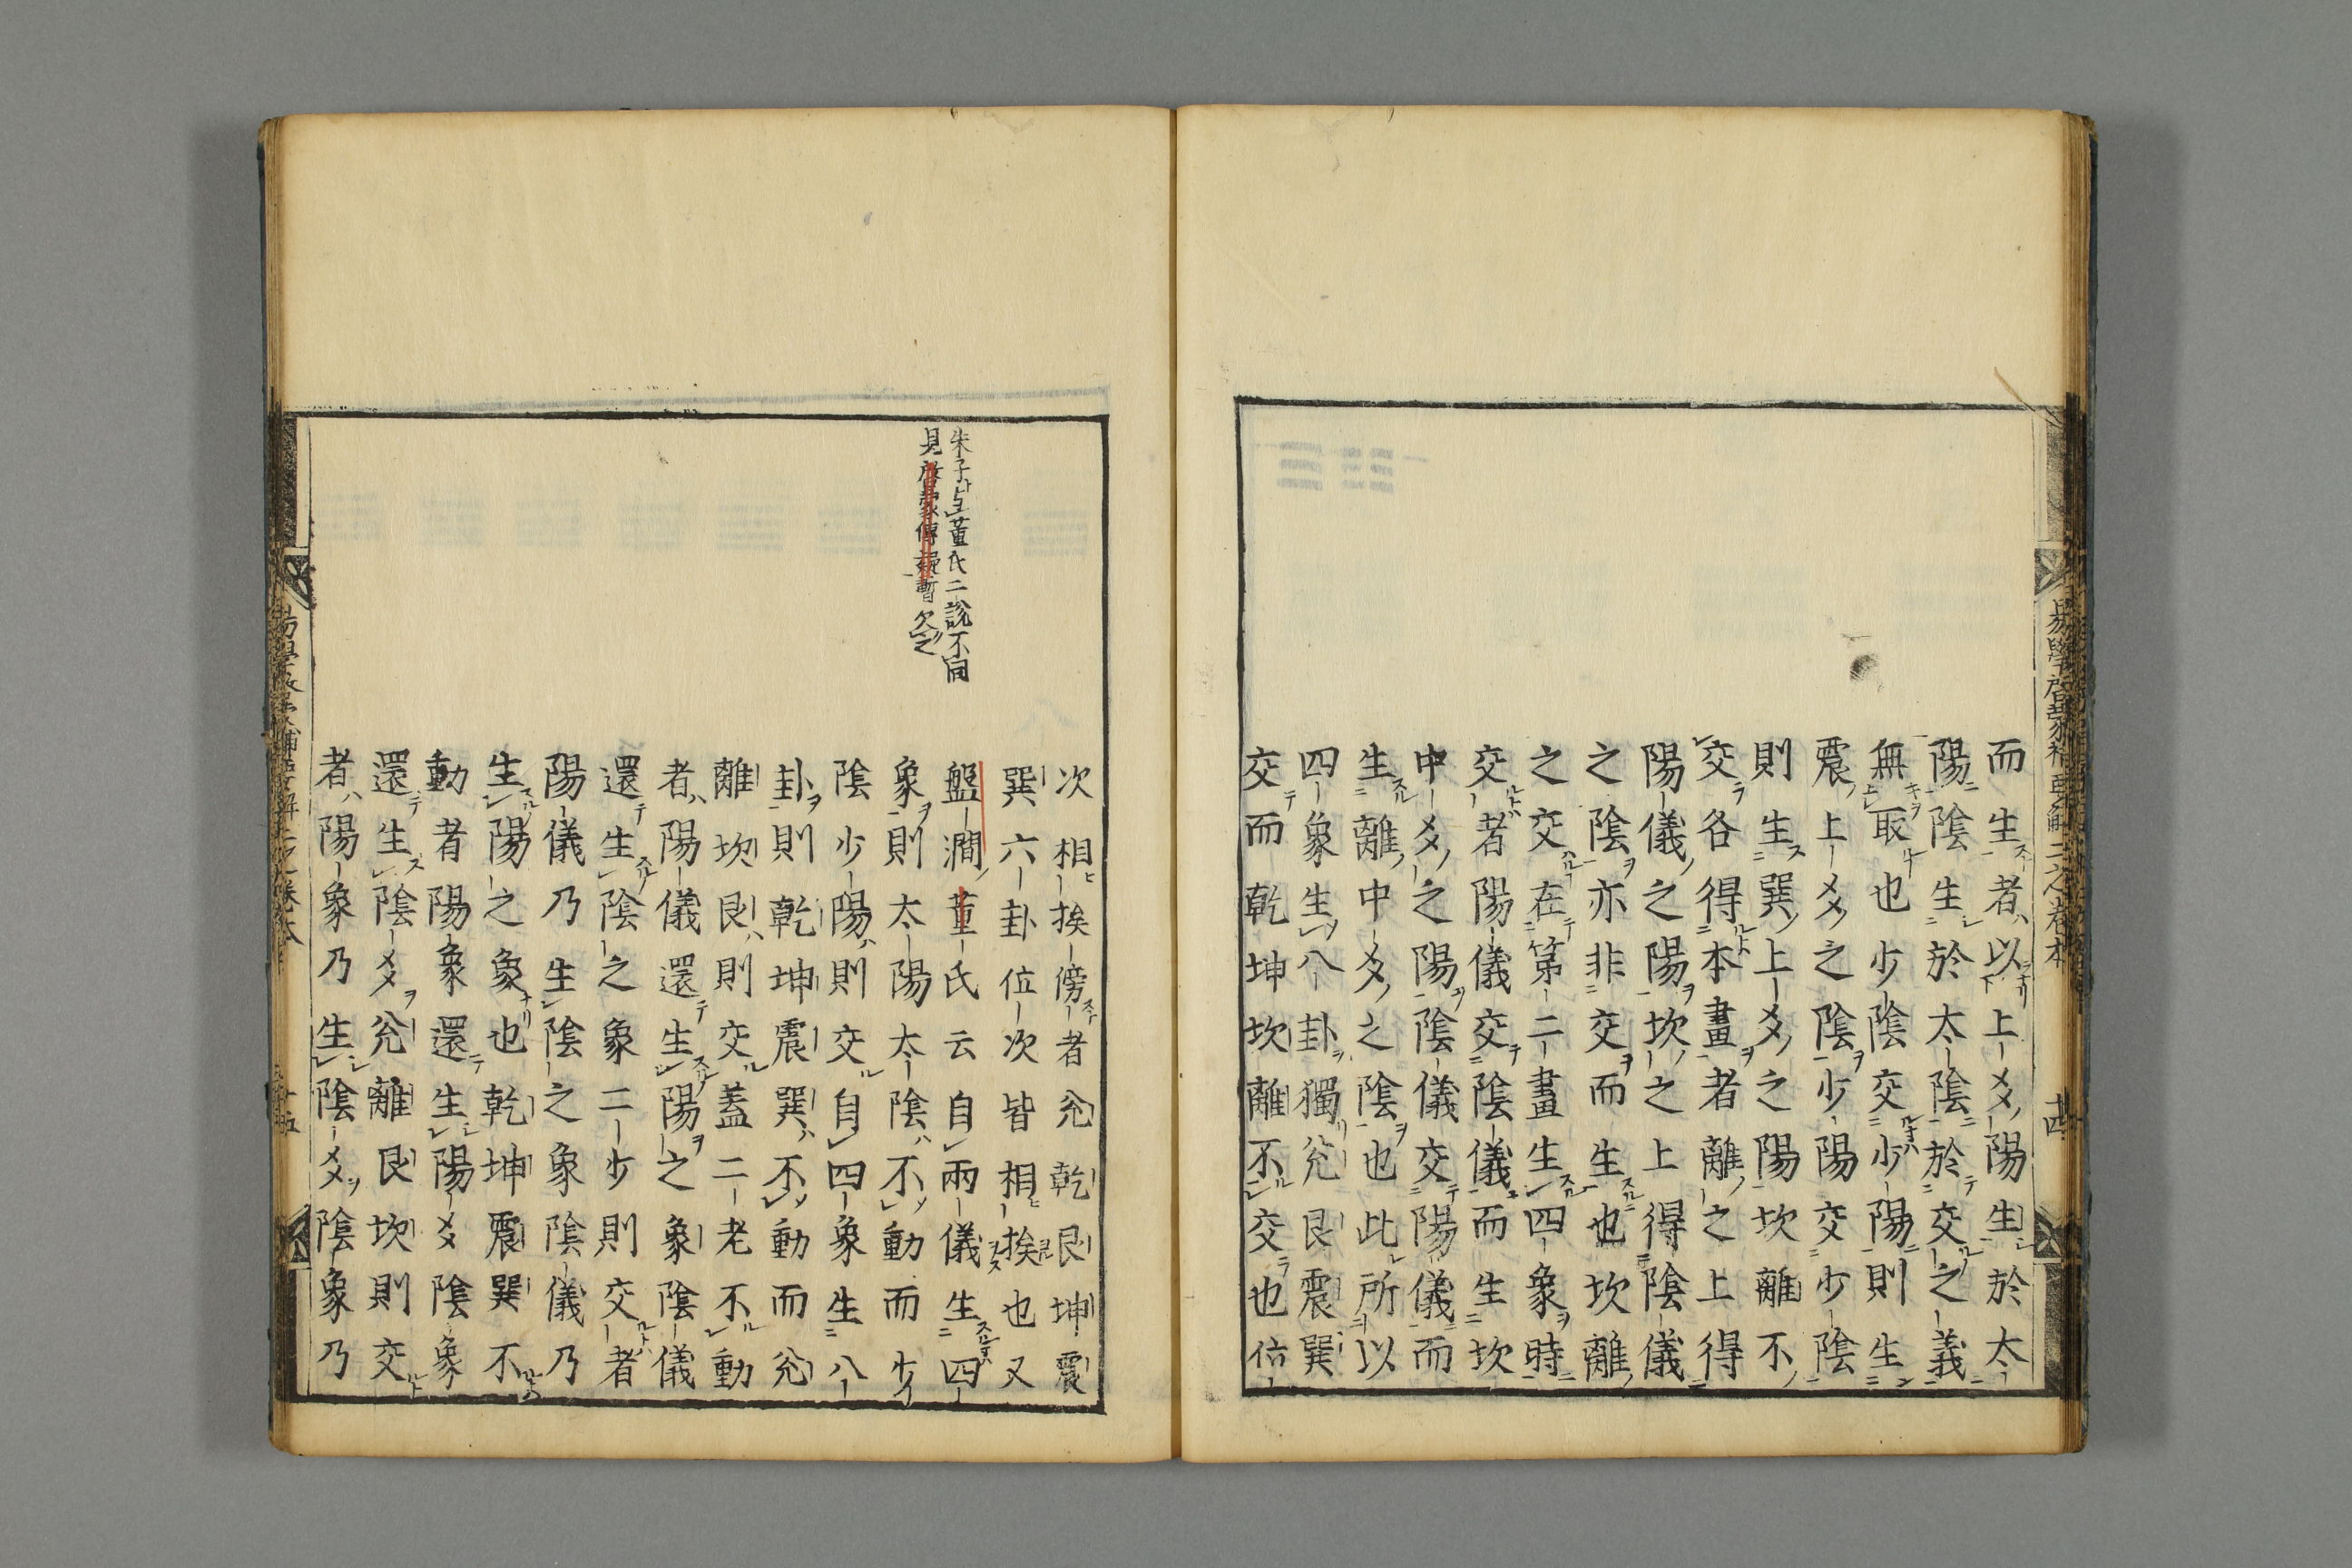 而生者以上爻陽生於太
陽陰生於太陰於交之義
無取也少陰交少陽則生
震上爻之陰少陽交少陰
則生巽上爻之陽坎離不
交各得本畫者離之上得
陽儀之陽坎之上得陰儀
之陰亦非交而生也坎離
之交在第二畫生四象時
交者陽儀交陰儀而生坎
中爻之陽陰儀交陽儀而
生離中爻之陰也此所以
四象生八卦獨兊艮震巽
交而乾坤坎離不交也位
次相挨傍者兊乾艮坤震
巽六卦位次皆相挨也又
盤澗董氏云自兩儀生四
象則太陽太陰不動而少
陰少陽則交自四象生八
卦則乾坤震巽不動而兊
離坎艮則交蓋二老不動
者陽儀還生陽之象陰儀
還生陰之象二少則交者
陽儀乃生陰之象陰儀乃
生陽之象也乾坤震巽不
動者陽象還生陽爻陰象
還生陰爻兊離艮坎則交
者陽象乃生陰爻陰象乃
朱子与董氏二說不同
見啓蒙傳疑暫欠之
十四
十五